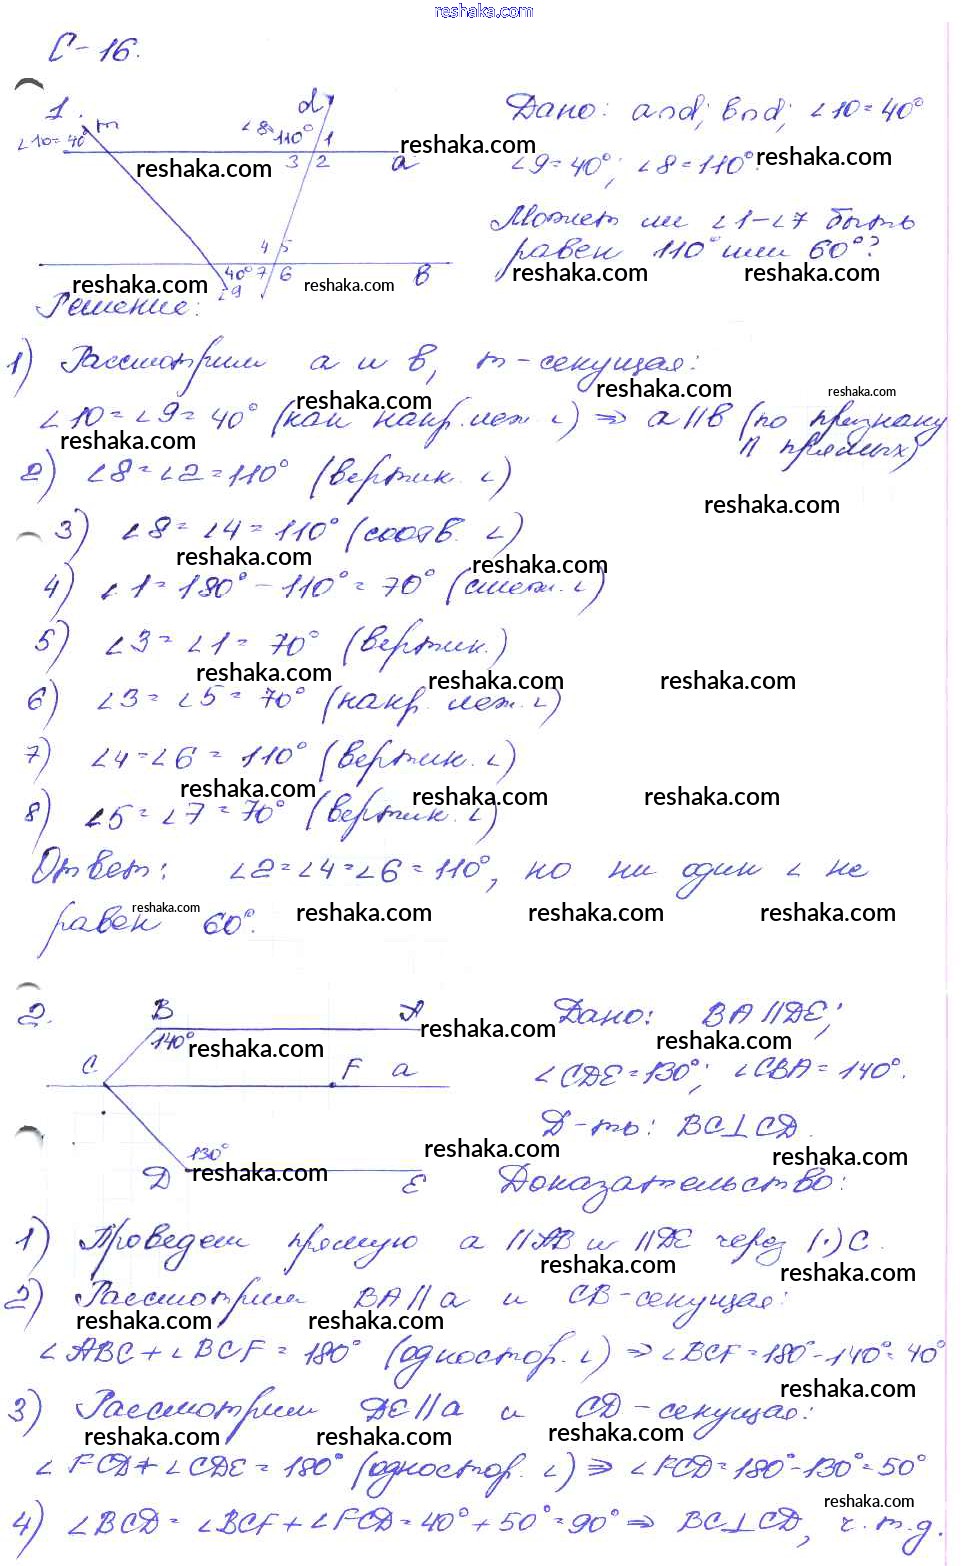 reshaka.com
С-16.
1.
Дано: a∩d; b∩d; ∠10=40°
∠9=40°; ∠8=110°.
Может ли ∠1-∠7 быть
равен 110° или 60°?
∠10=40° m ∠8=110° d 1
3 2 a
4 5
40° 7 6 в
∠9
Решение:
1) Рассмотрим a и в, m-секущая:
∠10=∠9=40° (как накр. леж. ∠) ⇒ a∥в (по признаку
∥ прямых)
2) ∠8=∠2=110° (вертик. ∠)
3) ∠8=∠4=110° (соотв. ∠)
4) ∠1=180°-110°=70° (смеж. ∠)
5) ∠3=∠1=70° (вертик.)
6) ∠3=∠5=70° (накр. леж. ∠)
7) ∠4=∠6=110° (вертик. ∠)
8) ∠5=∠7=70° (вертик. ∠)
Ответ: ∠2=∠4=∠6=110°, но ни один ∠ не
равен 60°.
2.
B A
140°
C F a
130°
D E
Дано: BA∥DE;
∠CDE=130°; ∠CBA=140°.
Д-ть: BC⊥CD.
Доказательство:
1) Проведем прямую a ∥AB и ∥DE через (·) C.
2) Рассмотрим BA∥a и CB-секущая:
∠ABC+∠BCF=180° (одностор. ∠) ⇒ ∠BCF=180°-140°=40°
3) Рассмотрим DE∥a и CD-секущая:
∠FCD+∠CDE=180° (одностор. ∠) ⇒ ∠FCD=180°-130°=50°
4) ∠BCD=∠BCF+∠FCD=40°+50°=90° ⇒ BC⊥CD, ч.т.д.